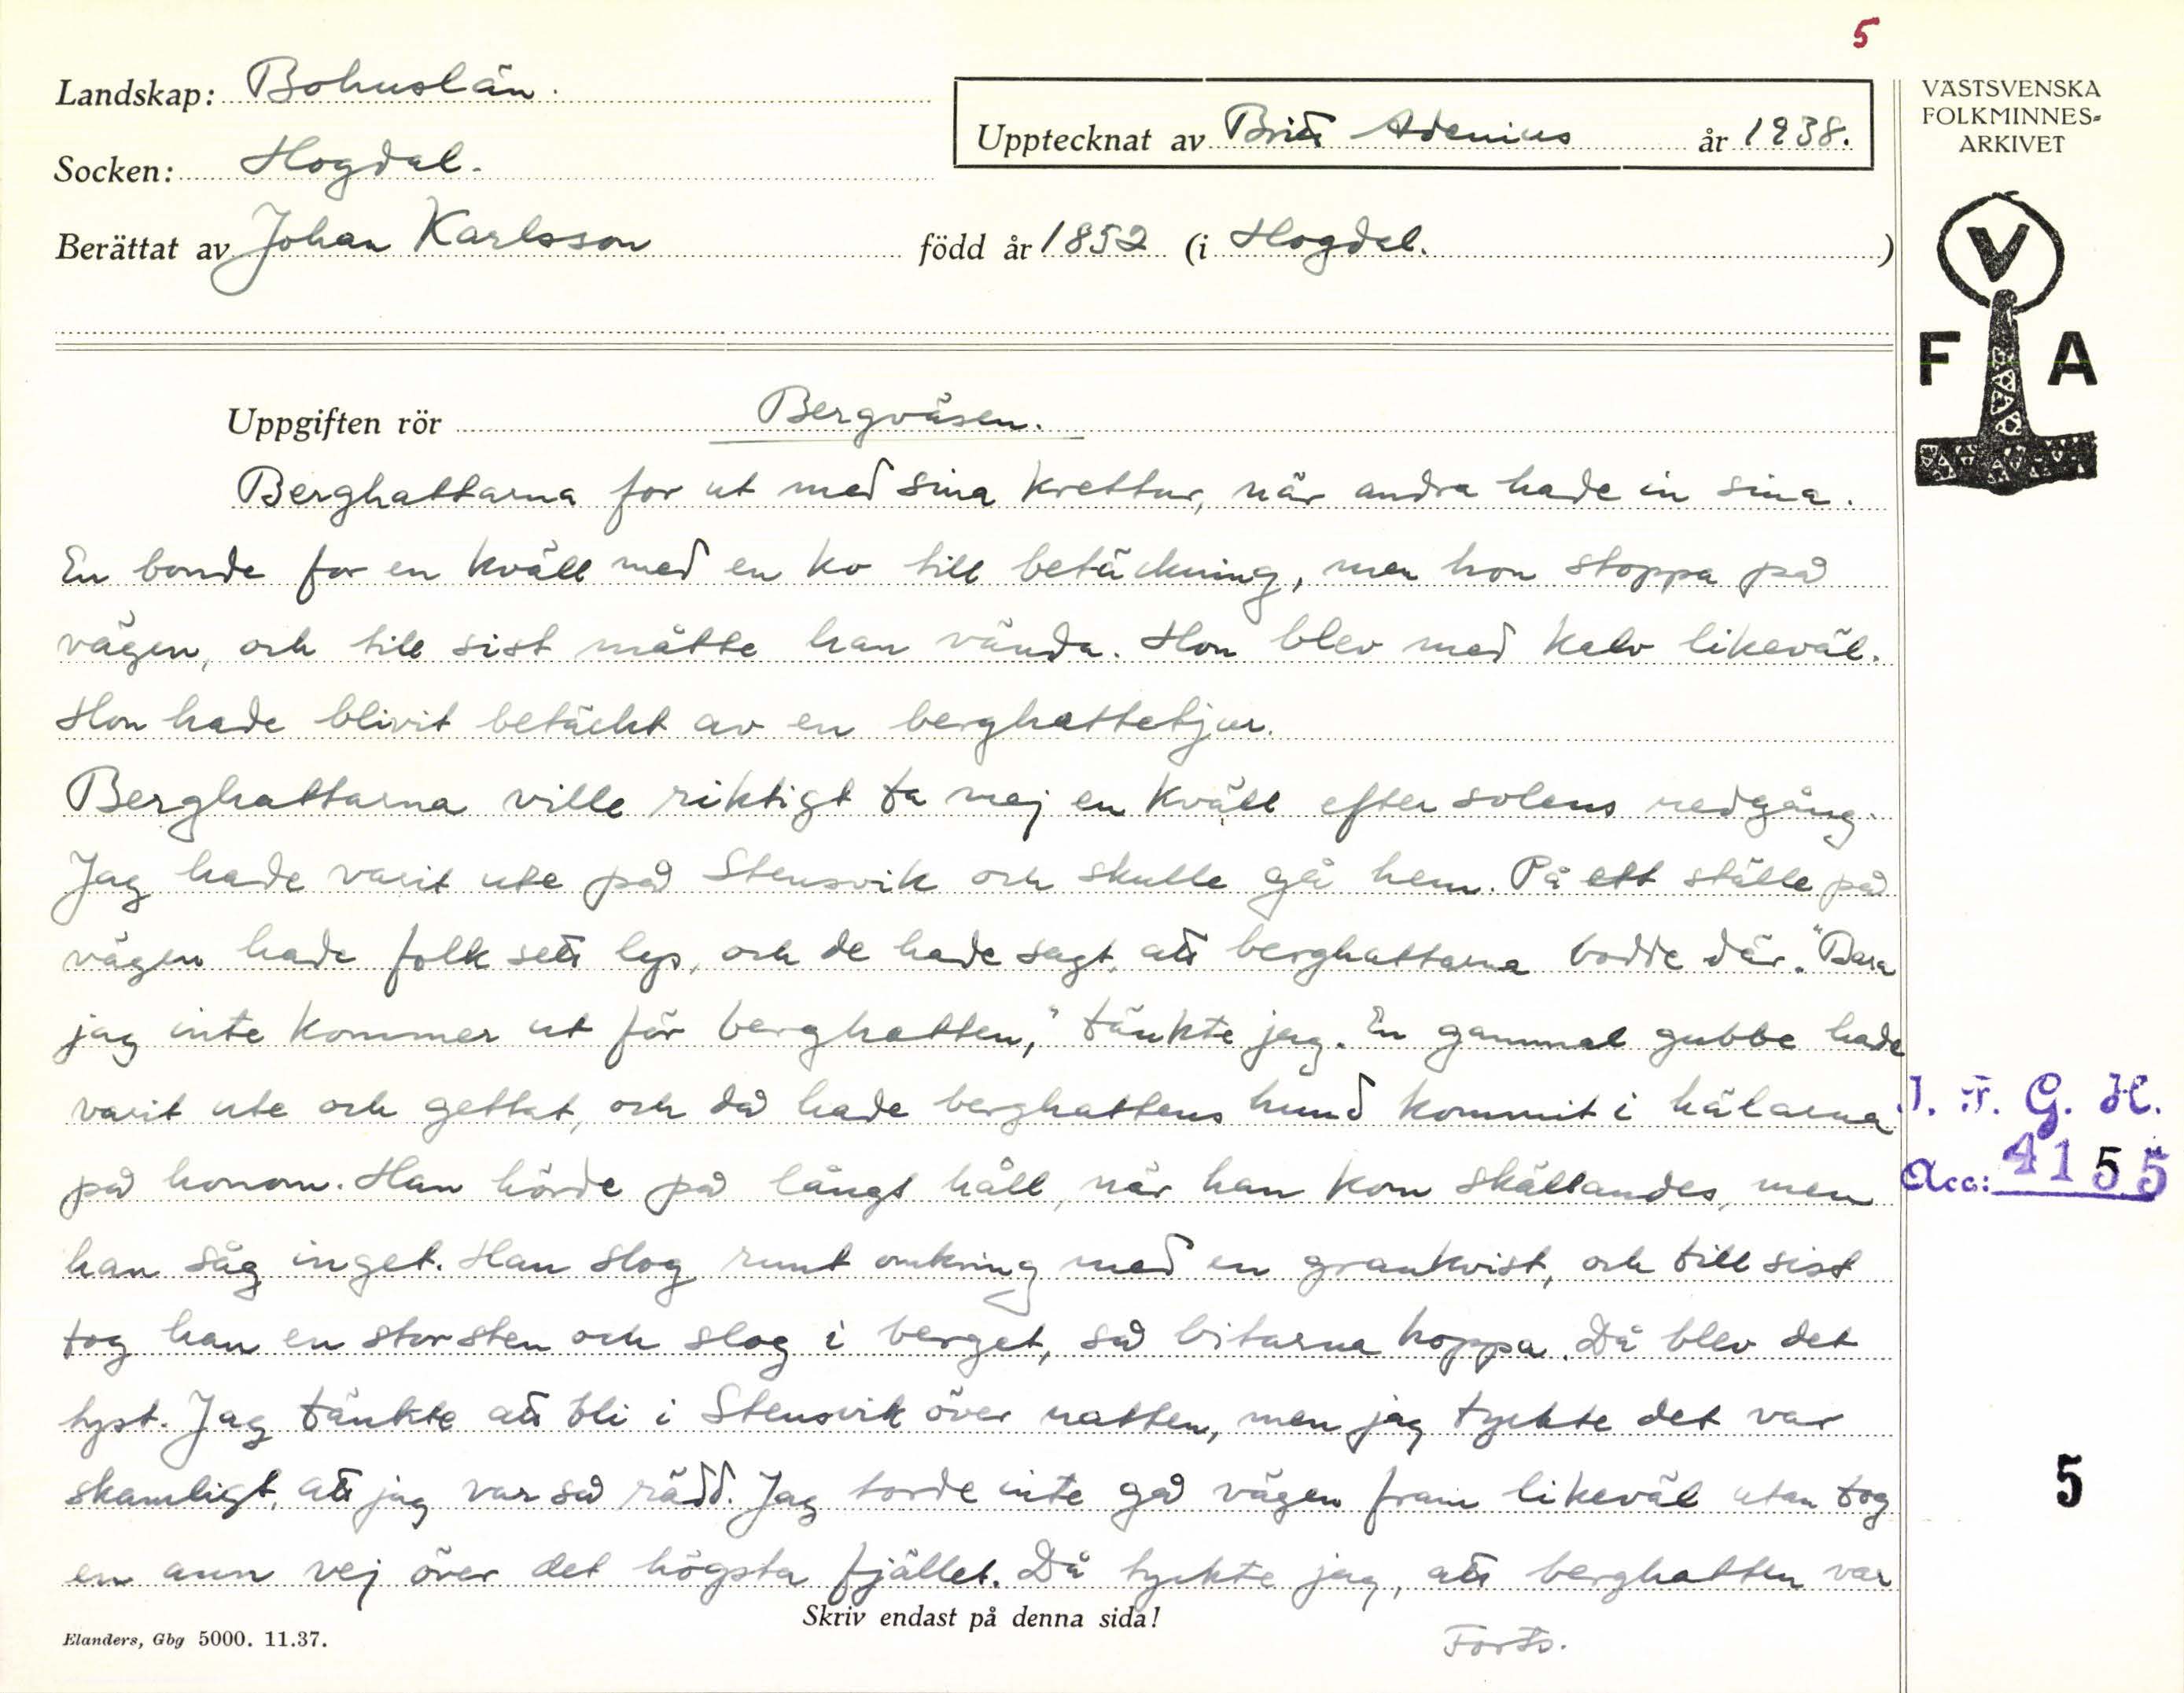 5
Landskap: Bohuslän.
Upptecknat av Britt Adenius år 1938.
Socken: Hogdal.
Berättat av Johan Karlsson född år 1852 (i Hogdal. )
VÄSTSVENSKA
FOLKMINNES=
ARKIVET
V
F A
Uppgiften rör Bergväsen.
Berghattarna for ut med sina krettur, när andra hade in sina.
En bonde for en kväll med en ko till betäckning, men hon stoppa på
vägen, och till sist måtte han vända. Hon blev med kalv likeväl.
Hon hade blivit betäckt av en berghattetjur.
Berghattarna ville riktigt ta mej en kväll efter solens nedgång.
Jag hade varit ute på Stensvik och skulle gå hem. På ett ställe på
vägen hade folk sett lys, och de hade sagt, att berghattarna bodde där. "Bara
jag inte kommer ut för berghatten," tänkte jag. En gammal gubbe hade
varit ute och gettat, och då hade berghattens hund kommit i hälarna
på honom. Han hörde på långt håll, när han kom skällandes, men
han såg inget. Han slog runt omkring med en grankvist, och till sist
tog han en stor sten och slog i berget, så bitarna hoppa. Då blev det
tyst. Jag tänkte att bli i Stensvik över natten, men jag tyckte det var
skamligt, att jag var så rädd. Jag torde inte gå vägen fram likeväl utan tog
en ann vej över det högsta fjället. Då tyckte jag, att berghatten var
Forts.
I. F. G. H.
Acc: 4155
5
Skriv endast på denna sida!
Elanders, Gbg 5000. 11.37.